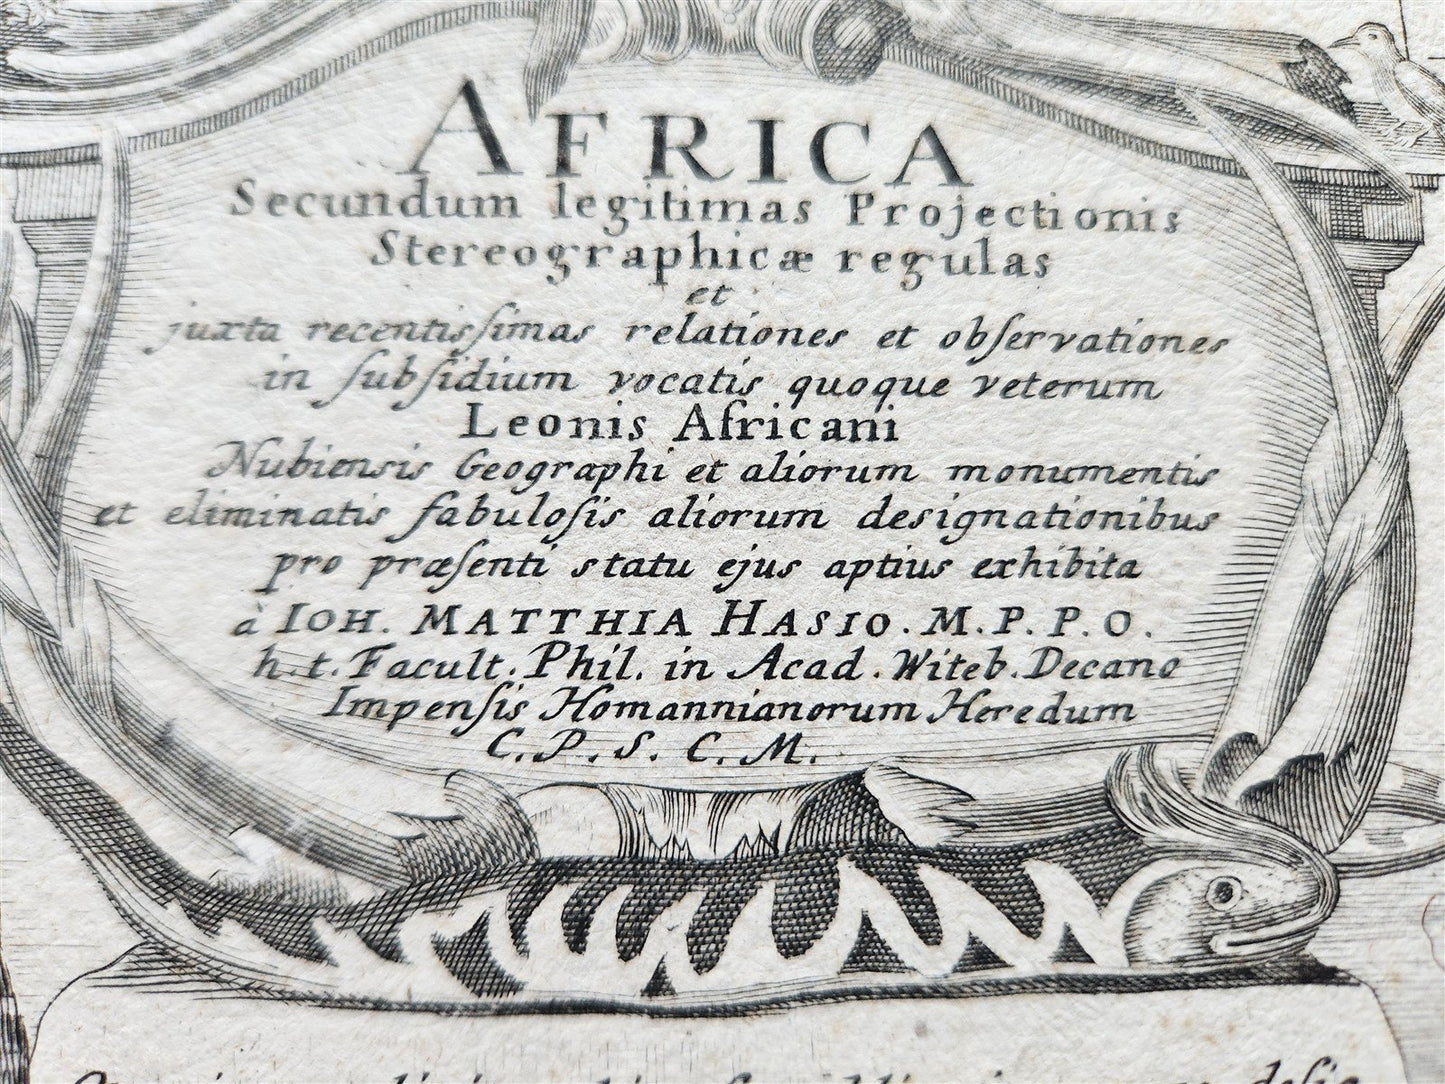 AFRICA
Secundum legitimas Projectionis
Stereographicæ regulas
et
juxta recentisſimas relationes et obſervationes
in ſubſidium vocatis quoque veterum
Leonis Africani
Nubiensis Geographi et aliorum monumentis
et eliminatis fabuloſis aliorum designationibus
pro præſenti statu ejus aptius exhibita
à IOH. MATTHIA HASIO. M. P. P. O.
h.t. Facult. Phil. in Acad. Witeb. Decano
Impenſis Homannianorum Heredum
C. P. S. C. M.